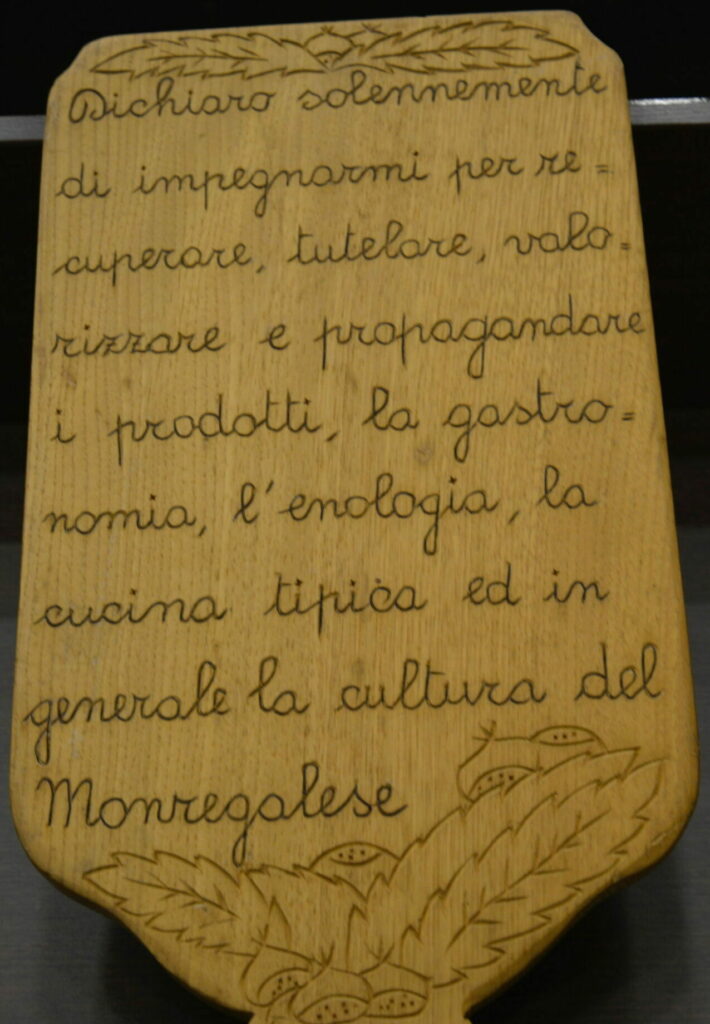 Dichiaro solennemente
di impegnarmi per re=
cuperare, tutelare, valo=
rizzare e propagandare
i prodotti, la gastro=
nomia, l'enologia, la
cucina tipica ed in
generale la cultura del
Monregalese